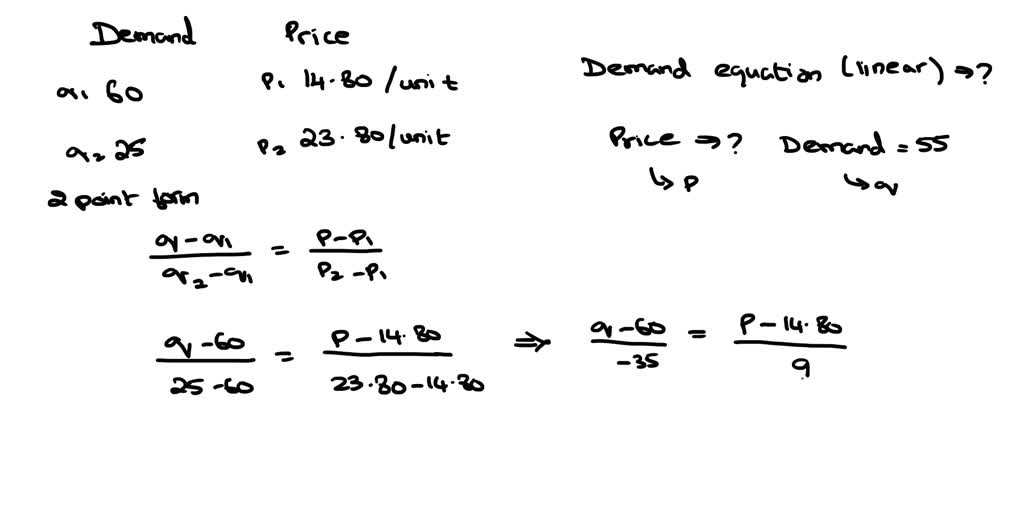 Demand Price
q₁ 60 P₁ 14.80/unit
q₂ 25 P₂ 23.80/unit
Demand equation (linear) ⇒?
Price ⇒? Demand = 55
↳ P ↳ q
2 point form
(q - q₁)/(q₂ - q₁) = (P - P₁)/(P₂ - P₁)
(q - 60)/(25 - 60) = (P - 14.80)/(23.80 - 14.80) ⇒ (q - 60)/(-35) = (P - 14.80)/9